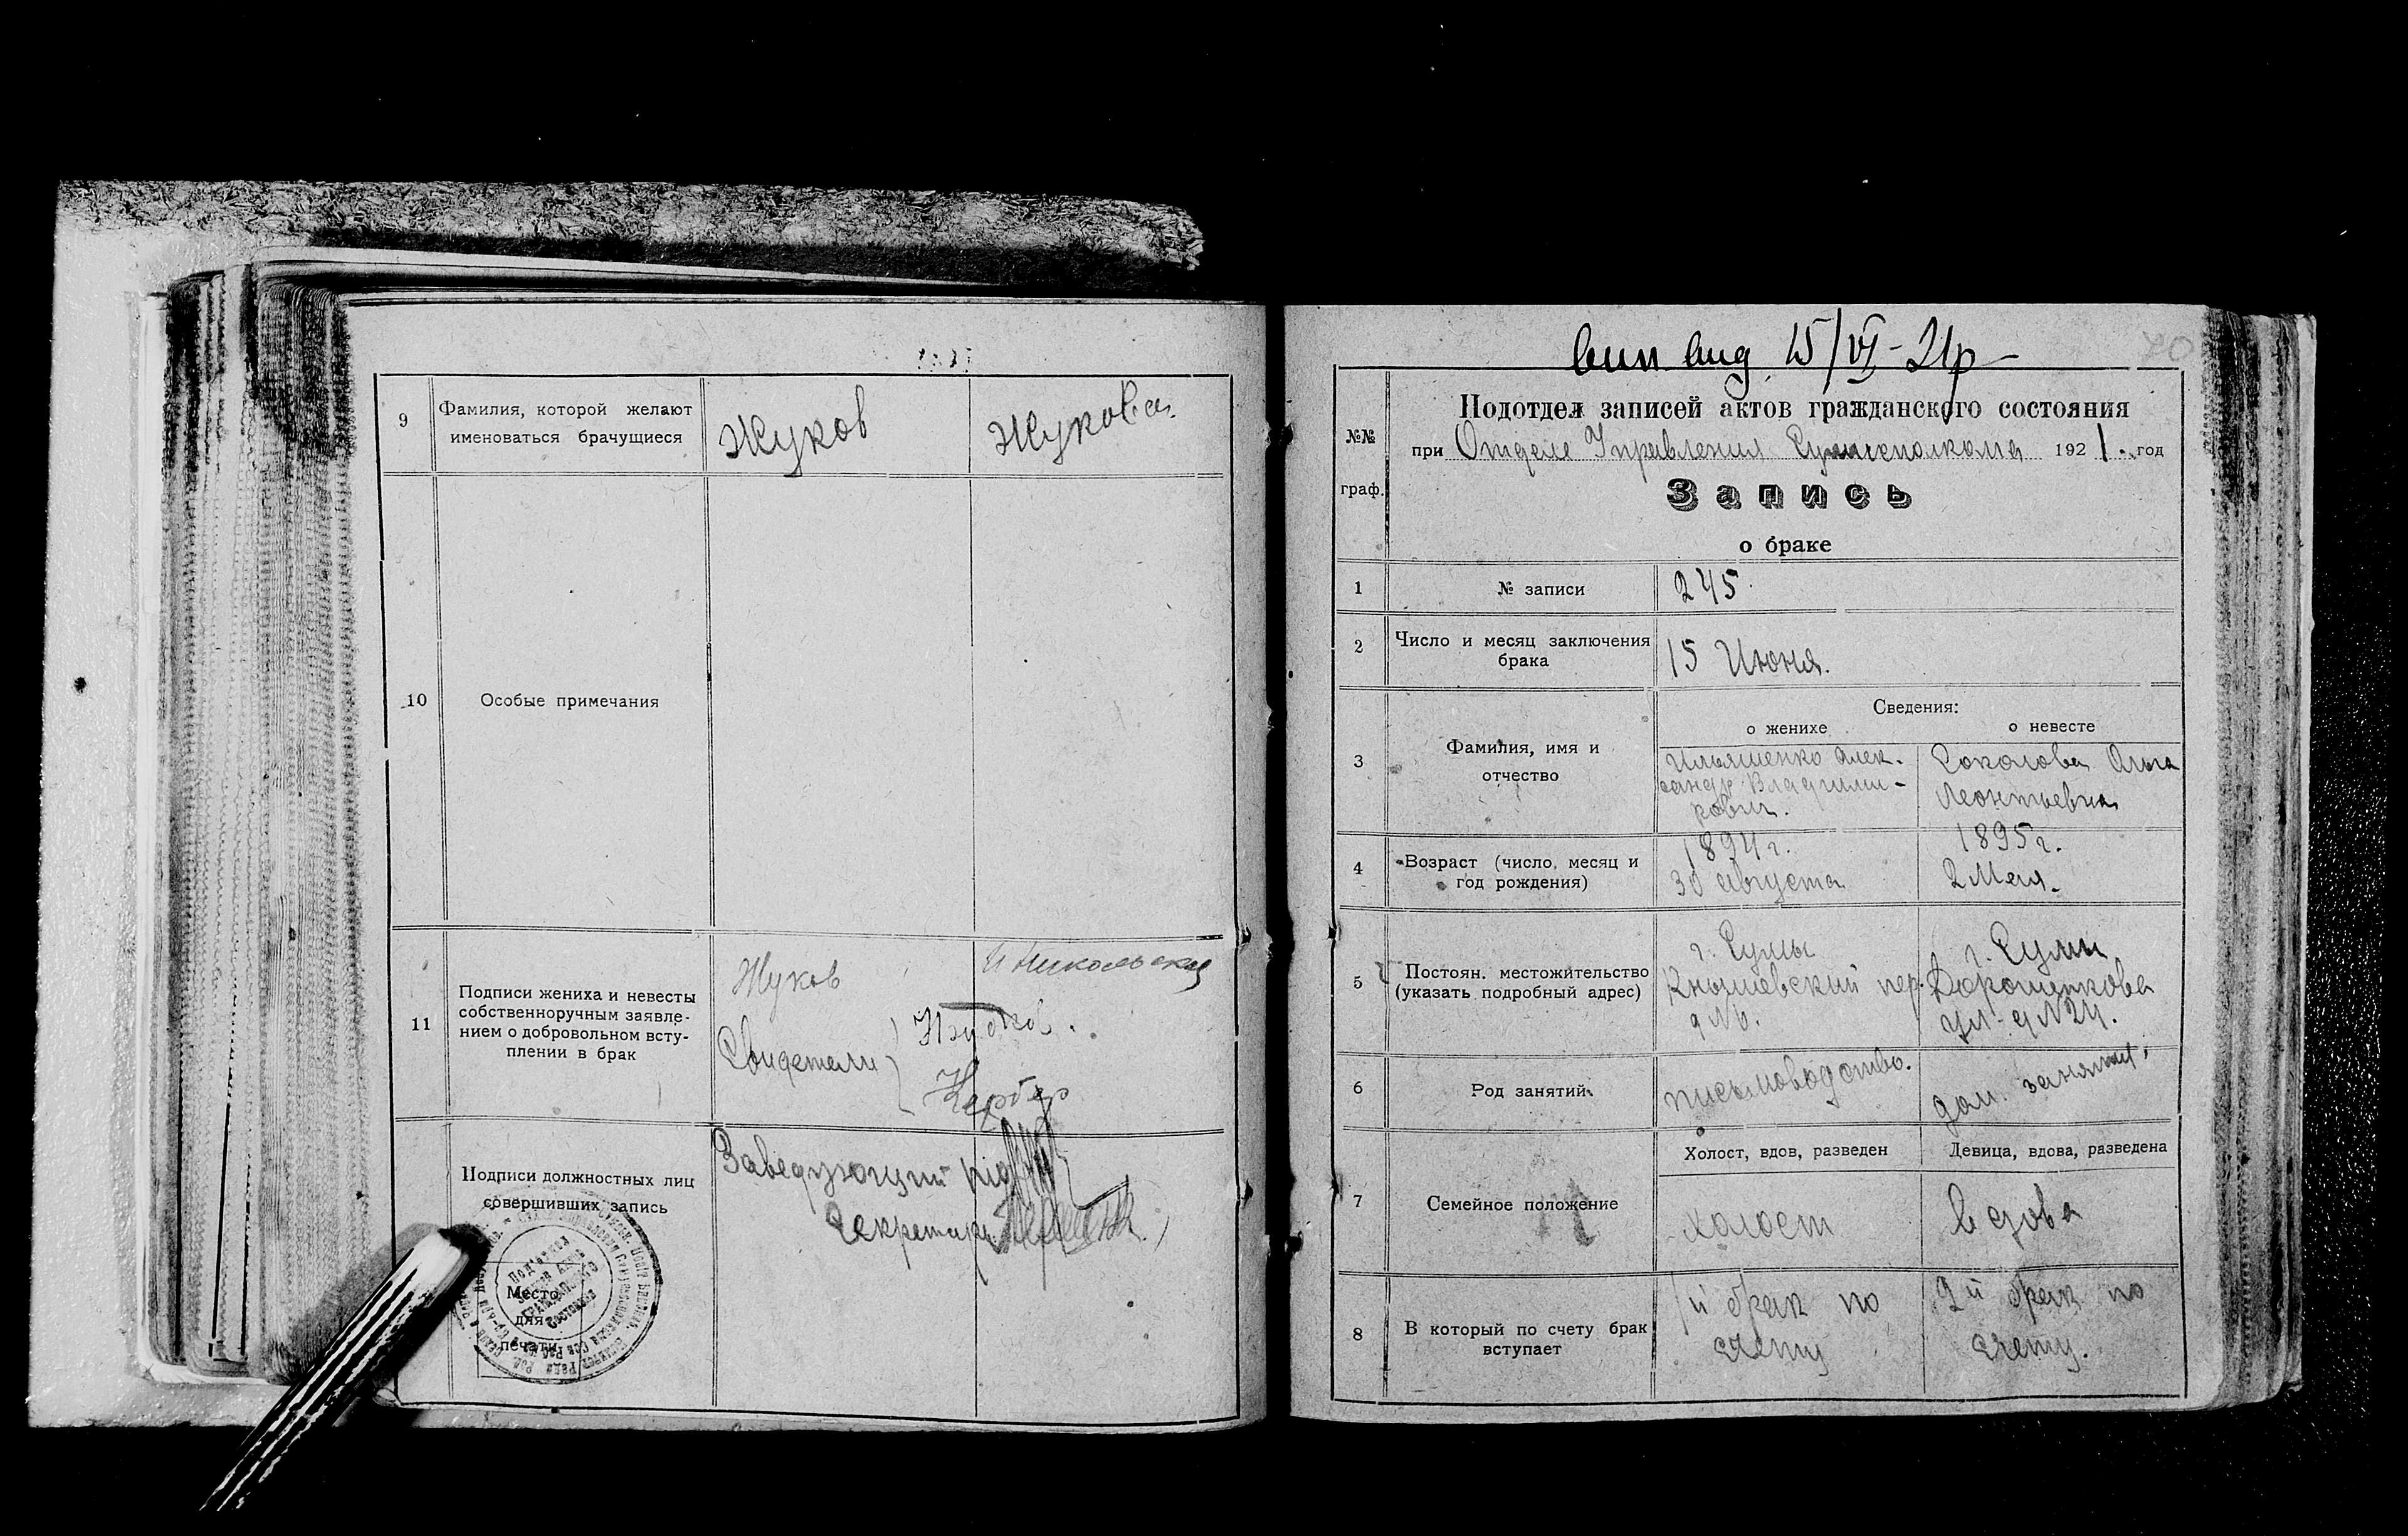 9
Фамилия, которой желают
именоваться брачущиеся
Жуков
Жукова
10
Особые примечания
11
Подписи жениха и невесты
собственноручным заявле-
нием о добровольном всту-
плении в брак
Жуков
Никольская
Свидетели
Кербер
Подписи должностных лиц
совершивших запись
Заведующий
Секретарь
Место
для
печати
15/VI-21р
№№
граф.
Подотдел записей актов гражданского состояния
при Отделе Управления 1921 год
Запись
о браке
1
№ записи
245
2
Число и месяц заключения
брака
15 Июня.
Сведения:
о женихе
о невесте
3
Фамилия, имя и
отчество
Ильяшенко Алек-
сандр Владими-
рович.
Соколова Ольга
Леонтьевна
4
Возраст (число, месяц и
год рождения)
1894 г.
30 августа
1895 г.
2 Мая.
5
Постоян. местожительство
(указать подробный адрес)
г. Сумы
пер.
г. Сумы
ул.
6
Род занятий.
письмоводство.
дом. занятия
7
Семейное положение
Холост, вдов, разведен
Девица, вдова, разведена
холост
вдова
8
В который по счету брак
вступает
1й брак по
счету
2й брак по
счету.